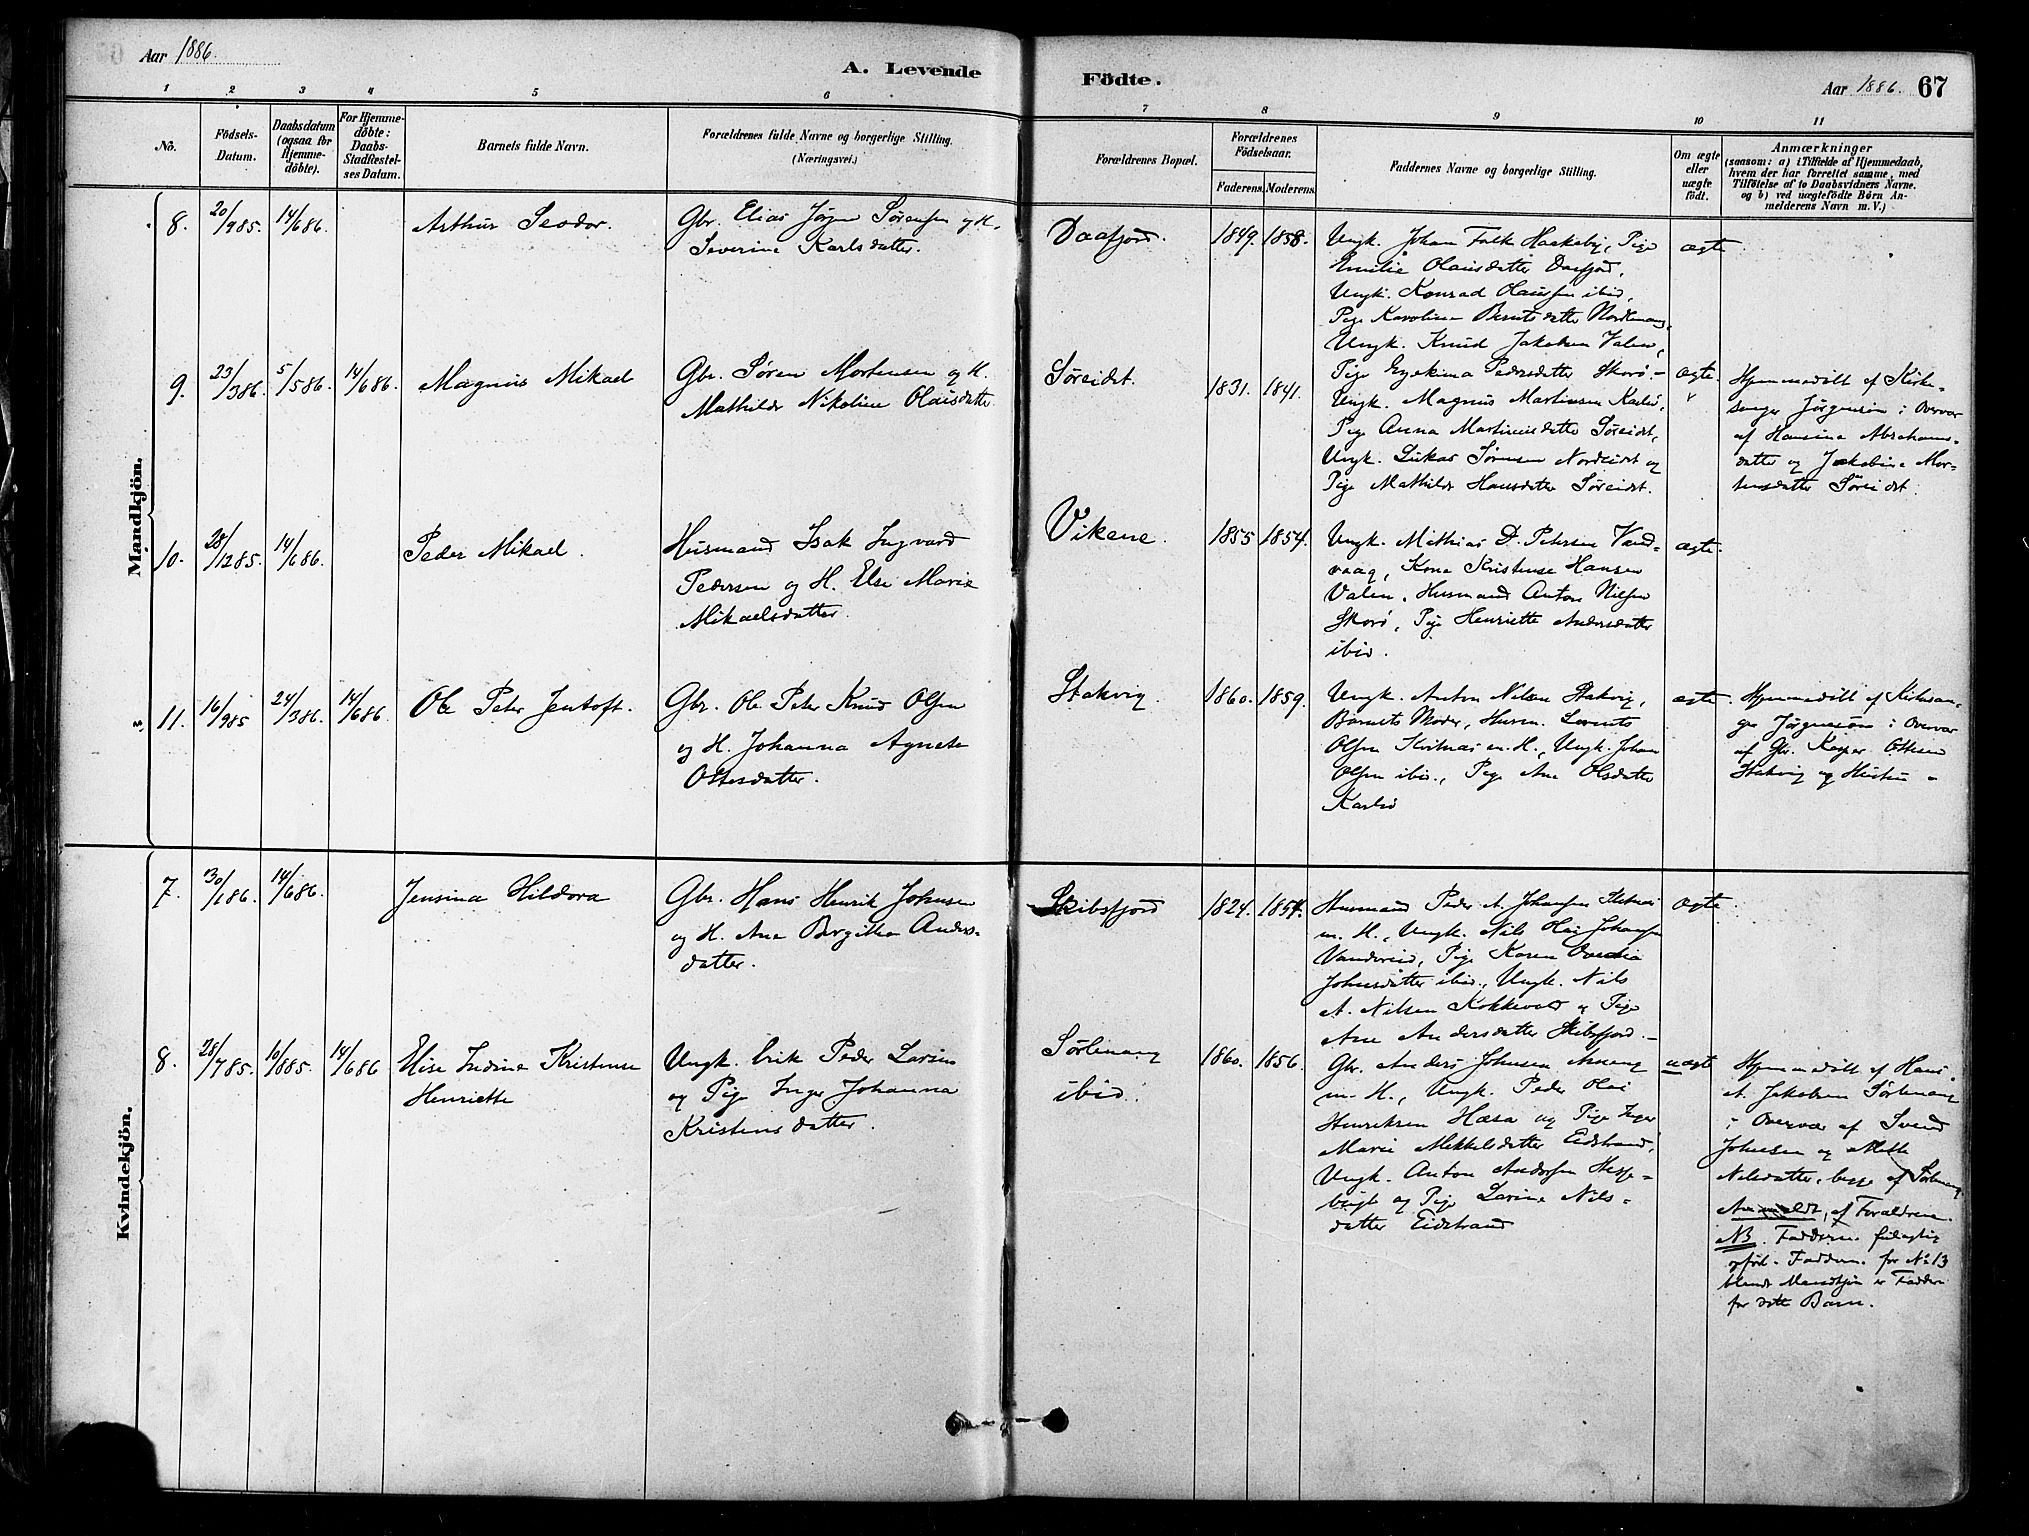 Aar 1886.
A. Levende
Födte.
Aar 1886. 67
1 2 3 4 5 6 7 8 9 10 11
No.
Födsels-
Datum.
Daabsdatum
(ogsaa for
Hjemme-
döbte).
For Hjemme-
döbte:
Daabs-
Stadfæstel-
ses Datum.
Barnets fulde Navn.
Forældrenes fulde Navne og borgerlige Stilling.
(Næringsvei.)
Forældrenes Bopæl.
Forældrenes
Födselsaar.
Faderens. Moderens.
Faddernes Navne og borgerlige Stilling.
Om ægte
eller
uægte
födt.
Anmærkninger
(saasom: a) i Tilfælde af Hjemmedaab,
hvem der har forrettet samme, med
Tilföielse af to Daabsvidners Navne.
og b) ved uægtefödte Börn An-
melderens Navn m. V.)
Mandkjön.
8. 20/985. 14/686.
Arthur Teodor.
Gbr. Elias Jørgen Sørensen og H.
Severine Karlsdatter.
Daafjord.
1849. 1858.
Ungk. Johan Falk Haakeby, Pige
Emilie Olausdatter Daafjord,
Ungk. Konrad Olaussen ibid,
Pige Karoline Berntsdatter
Ungk. Knud Jakobsen Valen,
ægte
9. 23/386. 5/586. 14/686.
Magnus Mikael
Gbr. Søren Mortensen og H.
Mathilde Nikoline Olausdatter.
Søreidet.
1831. 1841.
Pige Pedersdatter Skorø.-
Ungk. Magnus Martinsen Karlsø,
Pige Anna Martinusdatter Søreidet,
Ungk. Lukas Sørensen Nordeidet og
Pige Mathilde Hansdatter Søreidet.
ægte.
Hjemmedöbt af Kirke-
sanger Jørgensen i Overvær
af Hansina Abrahams-
datter og Jakobine Mor-
tensdatter Søreidet.
10. 28/1285. 14/686.
Peder Mikael.
Husmand Isak Ingvard
Pedersen og H. Else Marie
Mikaelsdatter.
Vikene.
1855 1854.
Ungk. Mathias D. Petersen Vand-
vaag, Kone Kristense Hansen
Valen, Husmand Anton Nilsen
Skorø, Pige Henriette Andersdatter
ibid.
ægte.
11. 16/985 24/386. 14/686.
Ole Peter Jentoft.
Gbr. Ole Peter Knud Olsen
og H. Johanna Agnete
Ottesdatter.
Stakvig
1860. 1859.
Ungk. Anton Nilsen Stakvig,
Barnets Moder, Husm. Lorents
Olsen Kvitnæs m. H., Ungk. Johan
Olsen ibid., Pige Ane Olsdatter
Karlsø
ægte.
Hjemmedöbt af Kirkesan-
ger Jørgensen i Overvær
af Gbr. Kasper Ottesen
Stakvig og Hustru -
Kvindekjön.
7. 30/186. 14/686.
Jensina Hildora
Gbr. Hans Henrik Johnsen
og H. Ane Bergitha Anders-
datter.
Skibsfjord
1824. 1854.
Husmand Peder A. Johansen
m. H., Ungk. Nils Olai Johansen
Vandereid, Pige Karen Ovedia
Johnsdatter ibid., Ungk. Nils
A. Nilsen Kokkevold og Pige
Ane Andersdatter Skibsfjord.-
ægte
8. 28/785. 10/885. 14/686
Elise Indina Kristense
Henriette
Ungk. Erik Peder Larsen
og Pige Inger Johanna
Kristensdatter.
Sørlenang
ibid.
1860. 1856.
Gbr. Anders Johnsen
m. H., Ungk. Peder Olai
Henriksen Hæsa og Pige Inger
Marie Mikkelsdatter Eidstrand,
Ungk. Anton Andersen
og Pige Lavine Nils-
datter Eidstrand
uægte
Hjemmedöbt af Hans
A. Jakobsen Sørlenang
i Overvær af Svend
Johnsen og Mette
Nilsdatter, begge af Sørlenang.
Anmeldt, af Forældrene.
NB. Faddere feilagtig
opført. Faddere for No 13
blandt Mandkjön er Faddere
for dette Barn.